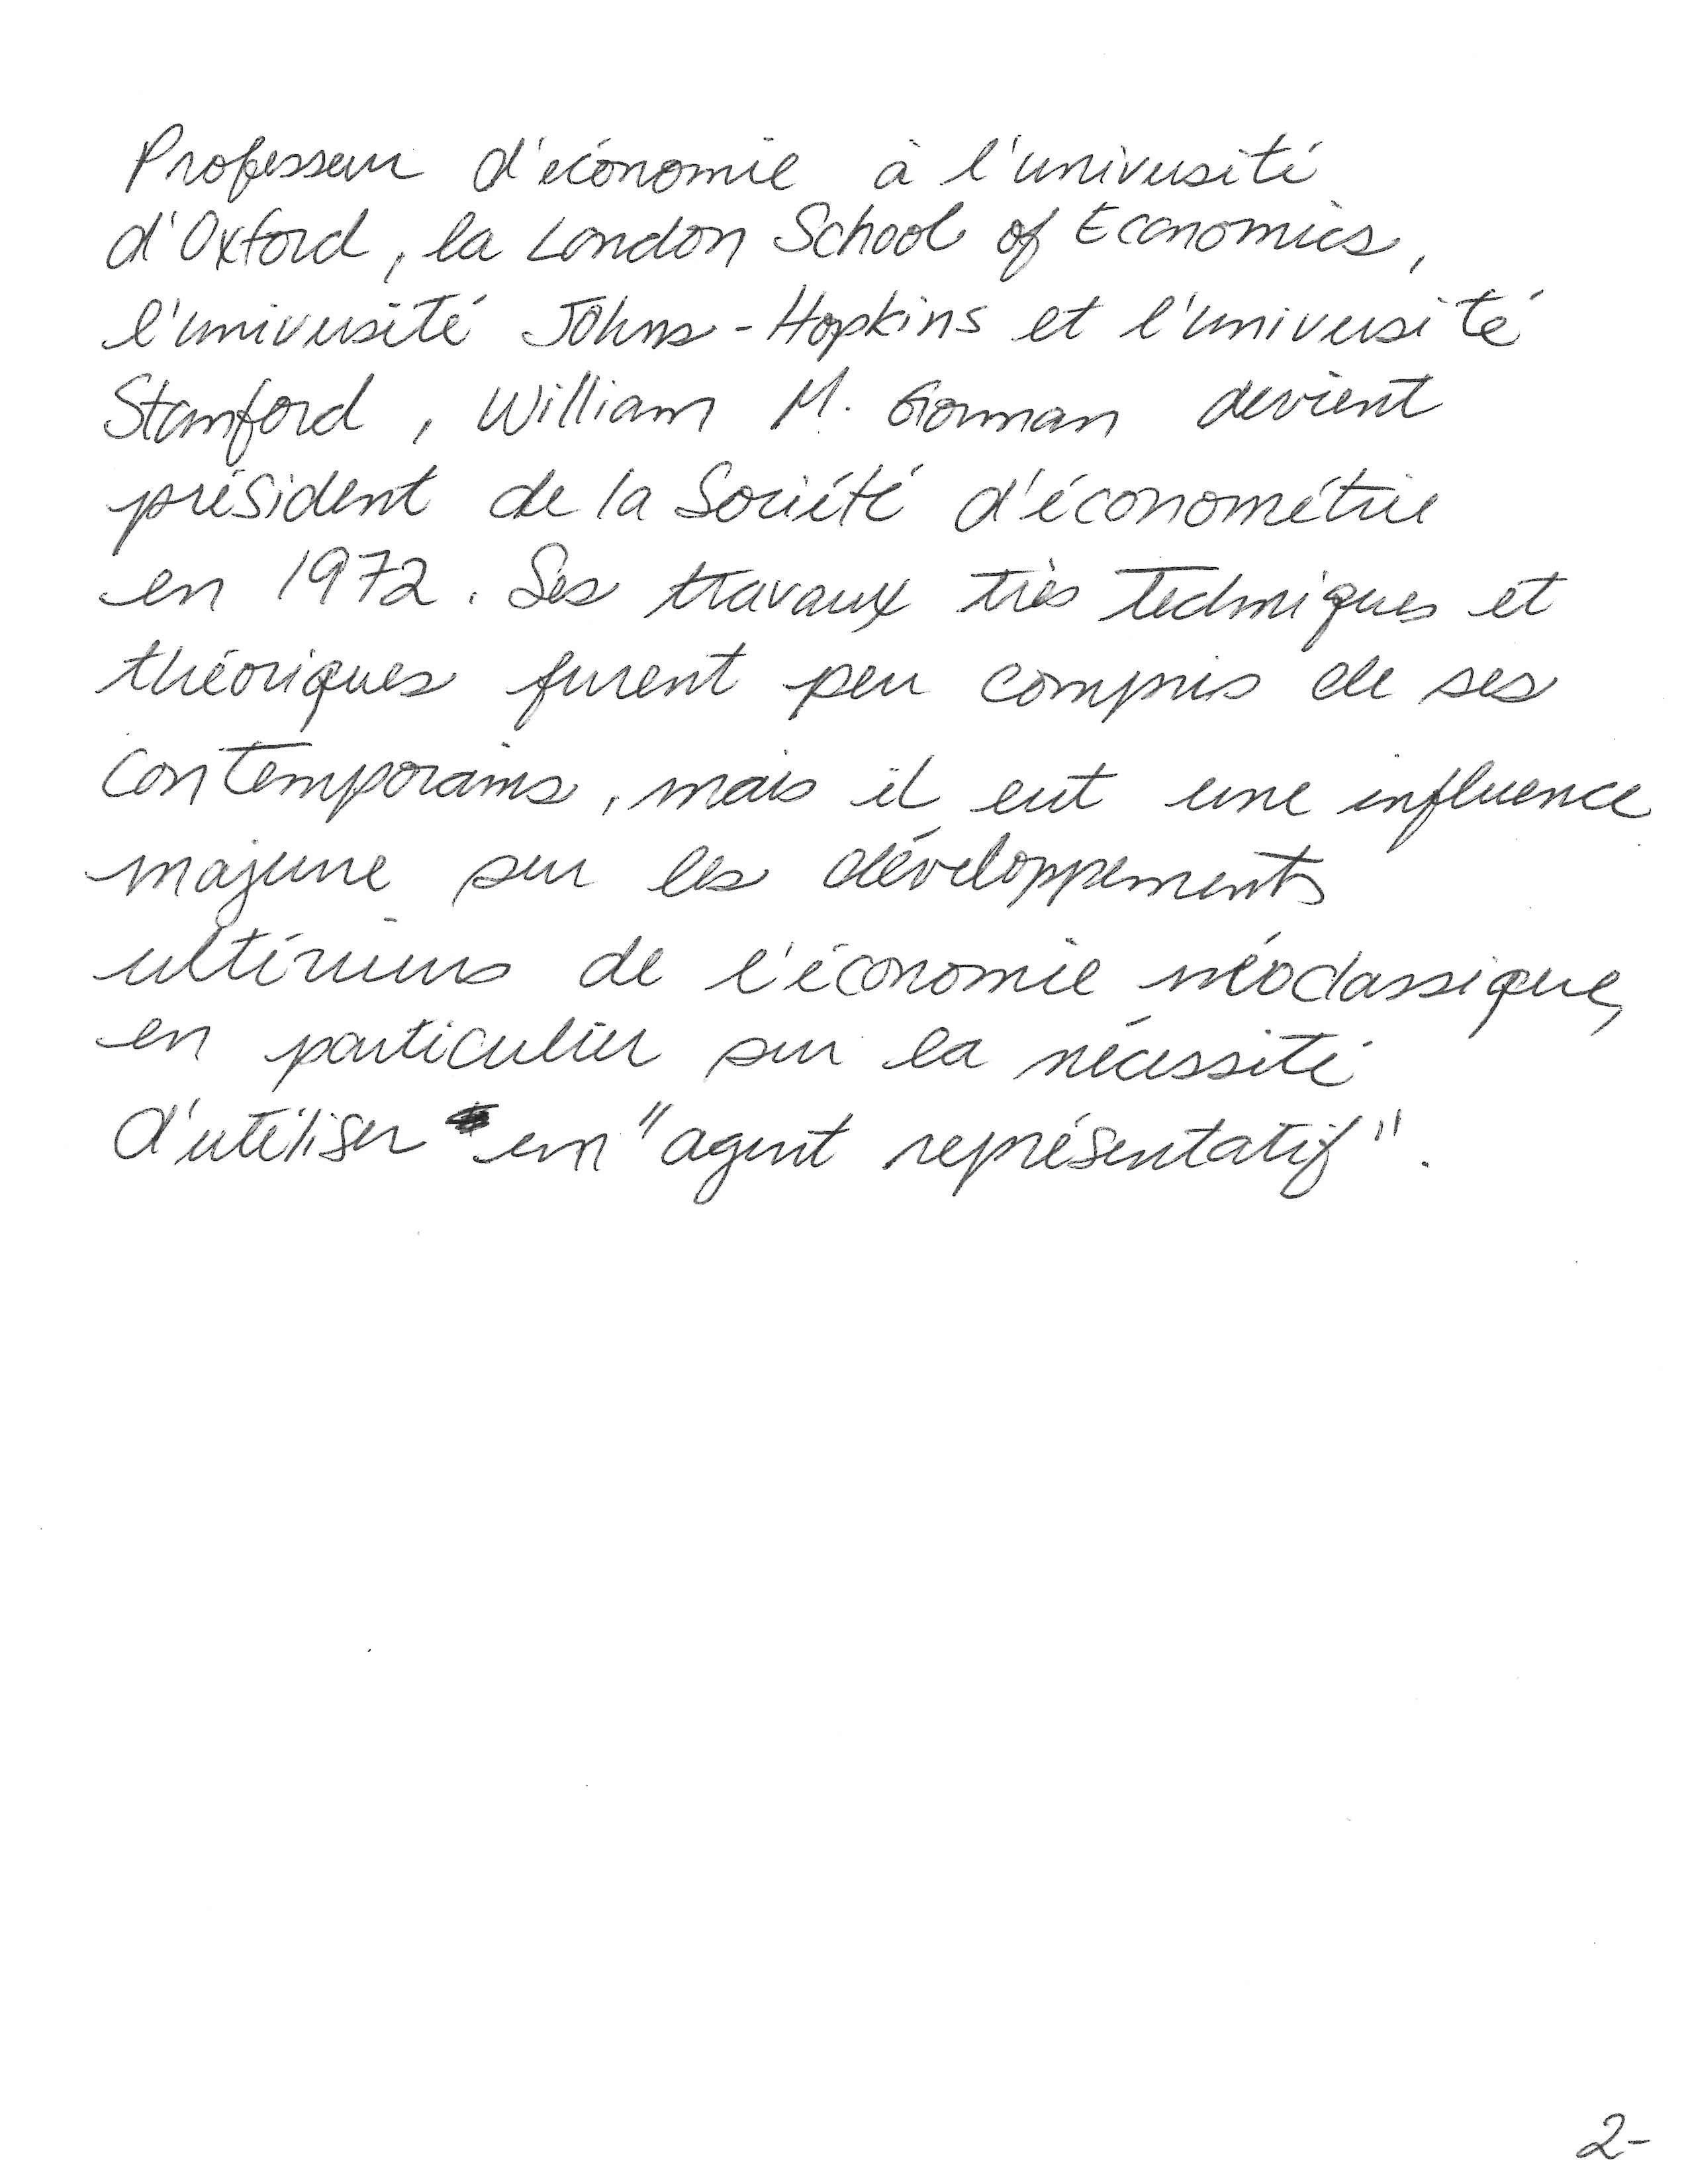 Professeur d'économie à l'université
d'Oxford, la London School of Economics,
l'université Johns-Hopkins et l'université
Stanford, William M. Gorman devient
président de la Société d'économétrie
en 1972. Ses travaux très techniques et
théoriques furent peu compris de ses
contemporains, mais il eut une influence
majeure sur les développements
ultérieurs de l'économie néoclassique,
en particulier sur la nécessité
d'utiliser un "agent représentatif".
2-